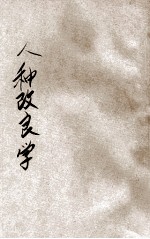 人种改良学